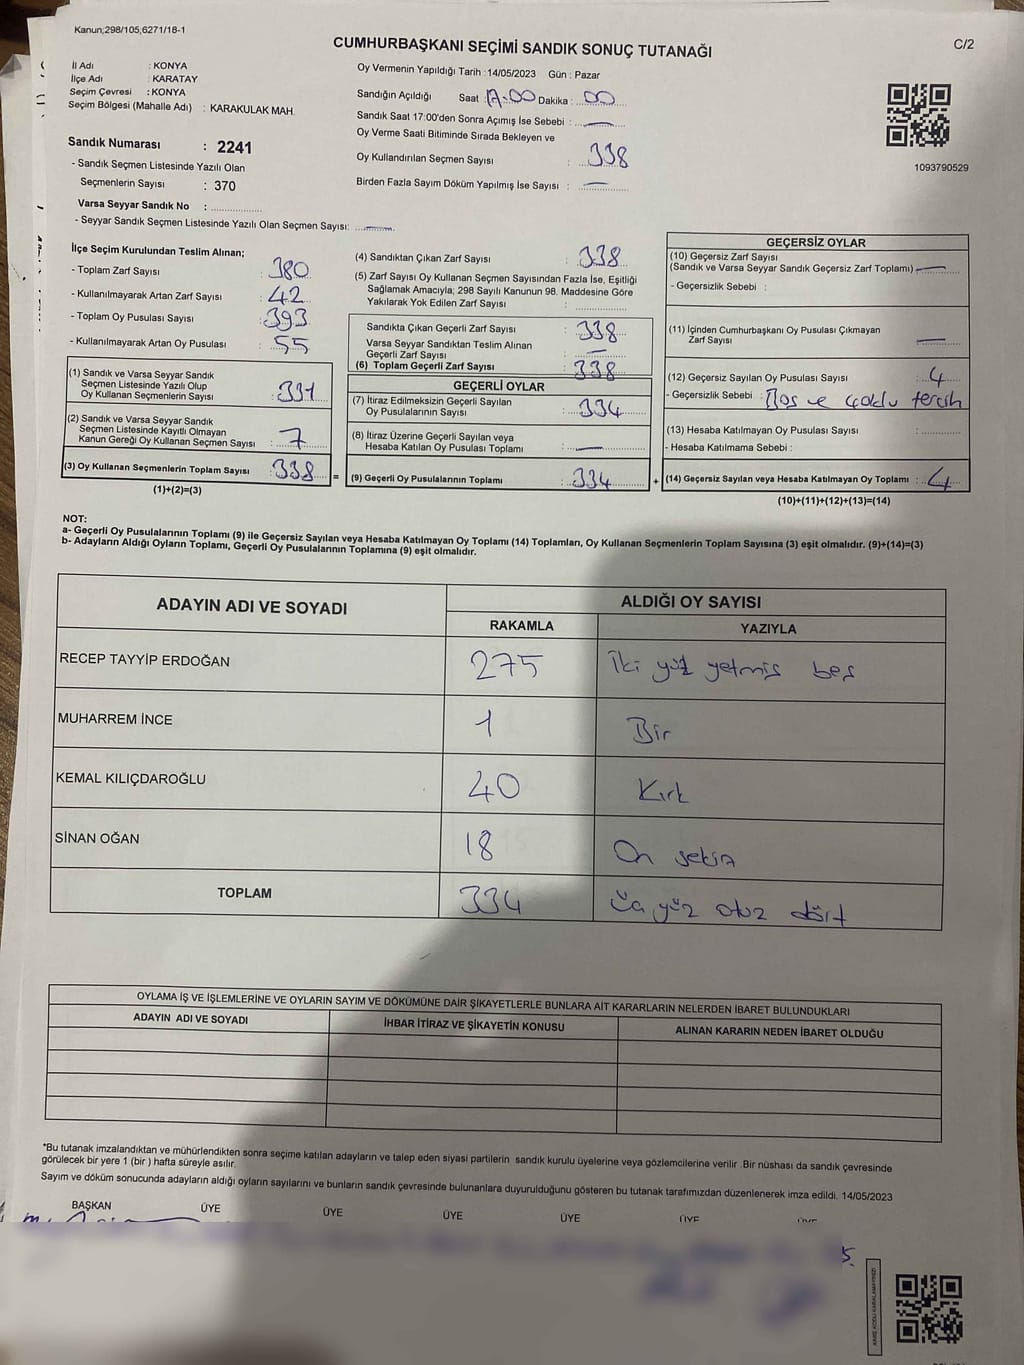 Kanun;298/105,6271/18-1
C/2
CUMHURBAŞKANI SEÇİMİ SANDIK SONUÇ TUTANAĞI
İl Adı : KONYA
İlçe Adı : KARATAY
Seçim Çevresi : KONYA
Seçim Bölgesi (Mahalle Adı) : KARAKULAK MAH.
Sandık Numarası : 2241
- Sandık Seçmen Listesinde Yazılı Olan
Seçmenlerin Sayısı : 370
Varsa Seyyar Sandık No :
- Seyyar Sandık Seçmen Listesinde Yazılı Olan Seçmen Sayısı: —
Oy Vermenin Yapıldığı Tarih :14/05/2023 Gün : Pazar
Sandığın Açıldığı Saat : 17:00 Dakika : 00
Sandık Saat 17:00'den Sonra Açımış İse Sebebi : —
Oy Verme Saati Bitiminde Sırada Bekleyen ve
Oy Kullandırılan Seçmen Sayısı : 338
Birden Fazla Sayım Döküm Yapılmış İse Sayısı : —
1093790529
İlçe Seçim Kurulundan Teslim Alınan;
- Toplam Zarf Sayısı : 380
- Kullanılmayarak Artan Zarf Sayısı : 42
- Toplam Oy Pusulası Sayısı : 393
- Kullanılmayarak Artan Oy Pusulası : 55
(1) Sandık ve Varsa Seyyar Sandık
Seçmen Listesinde Yazılı Olup
Oy Kullanan Seçmenlerin Sayısı : 331
(2) Sandık ve Varsa Seyyar Sandık
Seçmen Listesinde Kayıtlı Olmayan
Kanun Gereği Oy Kullanan Seçmen Sayısı : 7
(3) Oy Kullanan Seçmenlerin Toplam Sayısı : 338 =
(1)+(2)=(3)
(4) Sandıktan Çıkan Zarf Sayısı : 338
(5) Zarf Sayısı Oy Kullanan Seçmen Sayısından Fazla İse, Eşitliği
Sağlamak Amacıyla; 298 Sayılı Kanunun 98. Maddesine Göre
Yakılarak Yok Edilen Zarf Sayısı :
Sandıkta Çıkan Geçerli Zarf Sayısı : 338
Varsa Seyyar Sandıktan Teslim Alınan
Geçerli Zarf Sayısı : —
(6) Toplam Geçerli Zarf Sayısı : 338
GEÇERLİ OYLAR
(7) İtiraz Edilmeksizin Geçerli Sayılan
Oy Pusulalarının Sayısı : 334
(8) İtiraz Üzerine Geçerli Sayılan veya
Hesaba Katılan Oy Pusulası Toplamı : —
(9) Geçerli Oy Pusulalarının Toplamı : 334 +
GEÇERSİZ OYLAR
(10) Geçersiz Zarf Sayısı
(Sandık ve Varsa Seyyar Sandık Geçersiz Zarf Toplamı) —
- Geçersizlik Sebebi :
(11) İçinden Cumhurbaşkanı Oy Pusulası Çıkmayan
Zarf Sayısı : —
(12) Geçersiz Sayılan Oy Pusulası Sayısı : 4
- Geçersizlik Sebebi : Boş ve çoklu tercih
(13) Hesaba Katılmayan Oy Pusulası Sayısı :
- Hesaba Katılmama Sebebi :
(14) Geçersiz Sayılan veya Hesaba Katılmayan Oy Toplamı : 4
(10)+(11)+(12)+(13)=(14)
NOT:
a- Geçerli Oy Pusulalarının Toplamı (9) ile Geçersiz Sayılan veya Hesaba Katılmayan Oy Toplamı (14) Toplamları, Oy Kullanan Seçmenlerin Toplam Sayısına (3) eşit olmalıdır. (9)+(14)=(3)
b- Adayların Aldığı Oyların Toplamı, Geçerli Oy Pusulalarının Toplamına (9) eşit olmalıdır.
ADAYIN ADI VE SOYADI ALDIĞI OY SAYISI
RAKAMLA YAZIYLA
RECEP TAYYİP ERDOĞAN 275 İki yüz yetmiş beş
MUHARREM İNCE 1 Bir
KEMAL KILIÇDAROĞLU 40 Kırk
SİNAN OĞAN 18 On sekiz
TOPLAM 334 Üç yüz otuz dört
OYLAMA İŞ VE İŞLEMLERİNE VE OYLARIN SAYIM VE DÖKÜMÜNE DAİR ŞİKAYETLERLE BUNLARA AİT KARARLARIN NELERDEN İBARET BULUNDUKLARI
ADAYIN ADI VE SOYADI İHBAR İTİRAZ VE ŞİKAYETİN KONUSU ALINAN KARARIN NEDEN İBARET OLDUĞU
*Bu tutanak imzalandıktan ve mühürlendikten sonra seçime katılan adayların ve talep eden siyasi partilerin sandık kurulu üyelerine veya gözlemcilerine verilir .Bir nüshası da sandık çevresinde
görülecek bir yere 1 (bir ) hafta süreyle asılır.
Sayım ve döküm sonucunda adayların aldığı oyların sayılarını ve bunların sandık çevresinde bulunanlara duyurulduğunu gösteren bu tutanak tarafımızdan düzenlenerek imza edildi. 14/05/2023
BAŞKAN ÜYE ÜYE ÜYE ÜYE ÜYE ÜYE